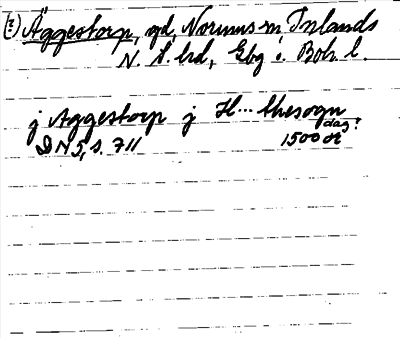 (?) Äggestorp, gd, Norums sn, Inlands
N. s. hd, Gbg o. Boh. l.
j Aggestorp j H... thesogn
DN 5, s. 711 1500 dr dag!